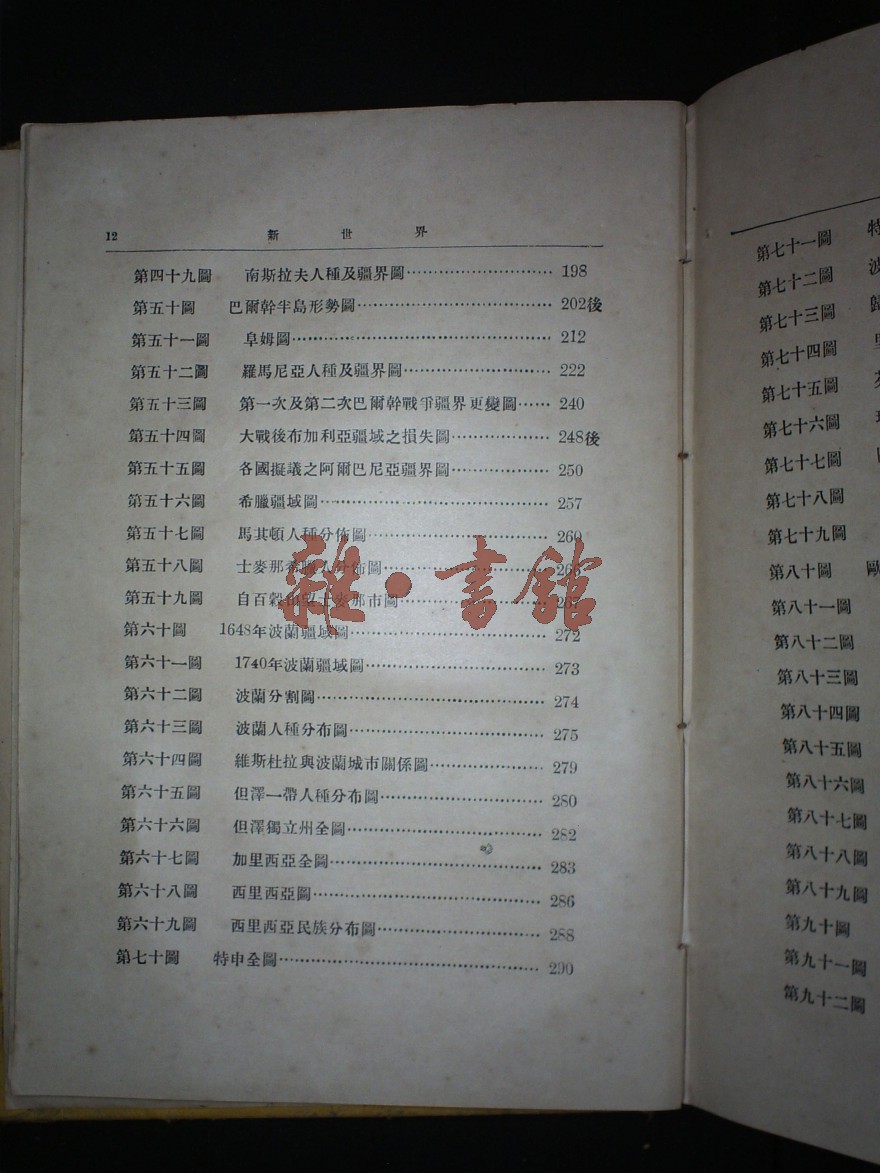 12 新世界
第四十九圖 南斯拉夫人種及疆界圖 198
第五十圖 巴爾幹半島形勢圖 202後
第五十一圖 阜姆圖 212
第五十二圖 羅馬尼亞人種及疆界圖 222
第五十三圖 第一次及第二次巴爾幹戰爭疆界更變圖 240
第五十四圖 大戰後布加利亞疆域之損失圖 248後
第五十五圖 各國擬議之阿爾巴尼亞疆界圖 250
第五十六圖 希臘疆域圖 257
第五十七圖 馬其頓人種分佈圖 260
第五十八圖 士麥那希臘人分佈圖
第五十九圖 自百穀山望士麥那市圖
雜·書館
第六十圖 1648年波蘭疆域圖 272
第六十一圖 1740年波蘭疆域圖 273
第六十二圖 波蘭分割圖 274
第六十三圖 波蘭人種分布圖 275
第六十四圖 維斯杜拉與波蘭城市關係圖 279
第六十五圖 但澤一帶人種分布圖 280
第六十六圖 但澤獨立州全圖 282
第六十七圖 加里西亞全圖 283
第六十八圖 西里西亞圖 286
第六十九圖 西里西亞民族分布圖 288
第七十圖 特申全圖 290
第七十一圖 特
第七十二圖 波
第七十三圖 歸
第七十四圖
第七十五圖
第七十六圖
第七十七圖
第七十八圖
第七十九圖
第八十圖 歐
第八十一圖
第八十二圖
第八十三圖
第八十四圖
第八十五圖
第八十六圖
第八十七圖
第八十八圖
第八十九圖
第九十圖
第九十一圖
第九十二圖